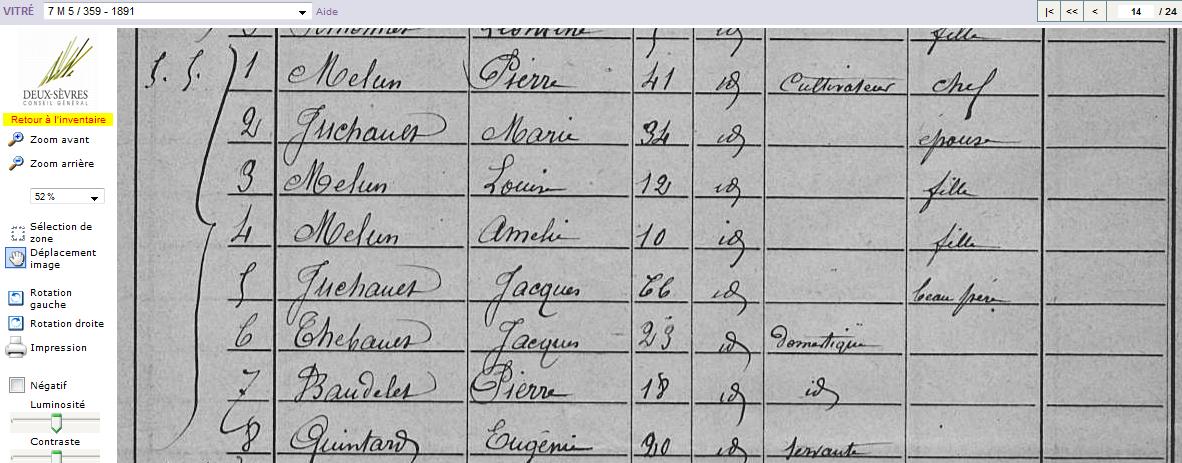 VITRÉ 7 M 5 / 359 - 1891 Aide |< << < 14 / 24
DEUX-SÈVRES
CONSEIL GÉNÉRAL
Retour à l'inventaire
Zoom avant
Zoom arrière
52 %
Sélection de
zone
Déplacement
image
Rotation
gauche
Rotation droite
Impression
Négatif
Luminosité
Contraste
fille
5. 5. 1 Melun Pierre 41 id Cultivateur chef
2 Juchault Marie 34 id épouse
3 Melun Louise 12 id fille
4 Melun Amélie 10 id fille
5 Juchault Jacques 66 id beau père
6 Jacques 23 id Domestique
7 Baudelet Pierre 18 id id
8 Quintard Eugénie 20 id Servante